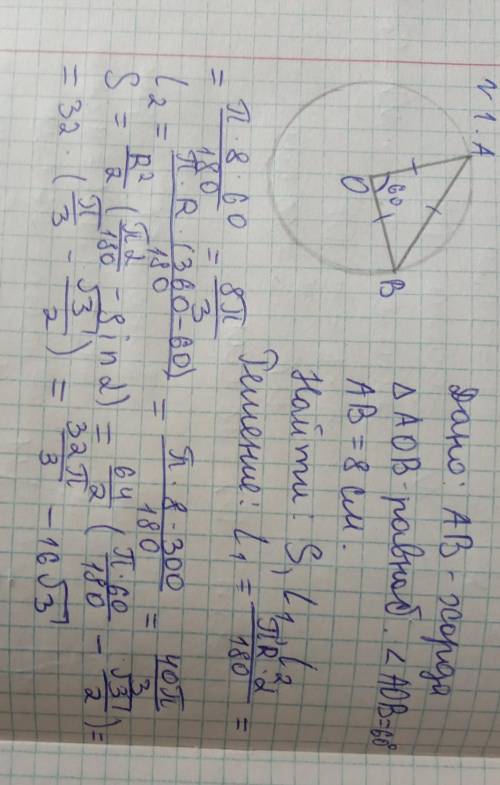 №1.
A
O
60
B
Дано: AB - хорда
△AOB - равноб. ∠AOB=60°
AB = 8 см.
Найти: S, l₁, l₂
Решение: l₁ = πR·α/180 =
= π·8·60/180 = 8π/3
l₂ = π·R·(360-60)/180 = π·8·300/180 = 40π/3
S = R²/2 (πα/180 - sin α) = 64/2 (π·60/180 - √3/2) =
= 32·(π/3 - √3/2) = 32π/3 - 16√3